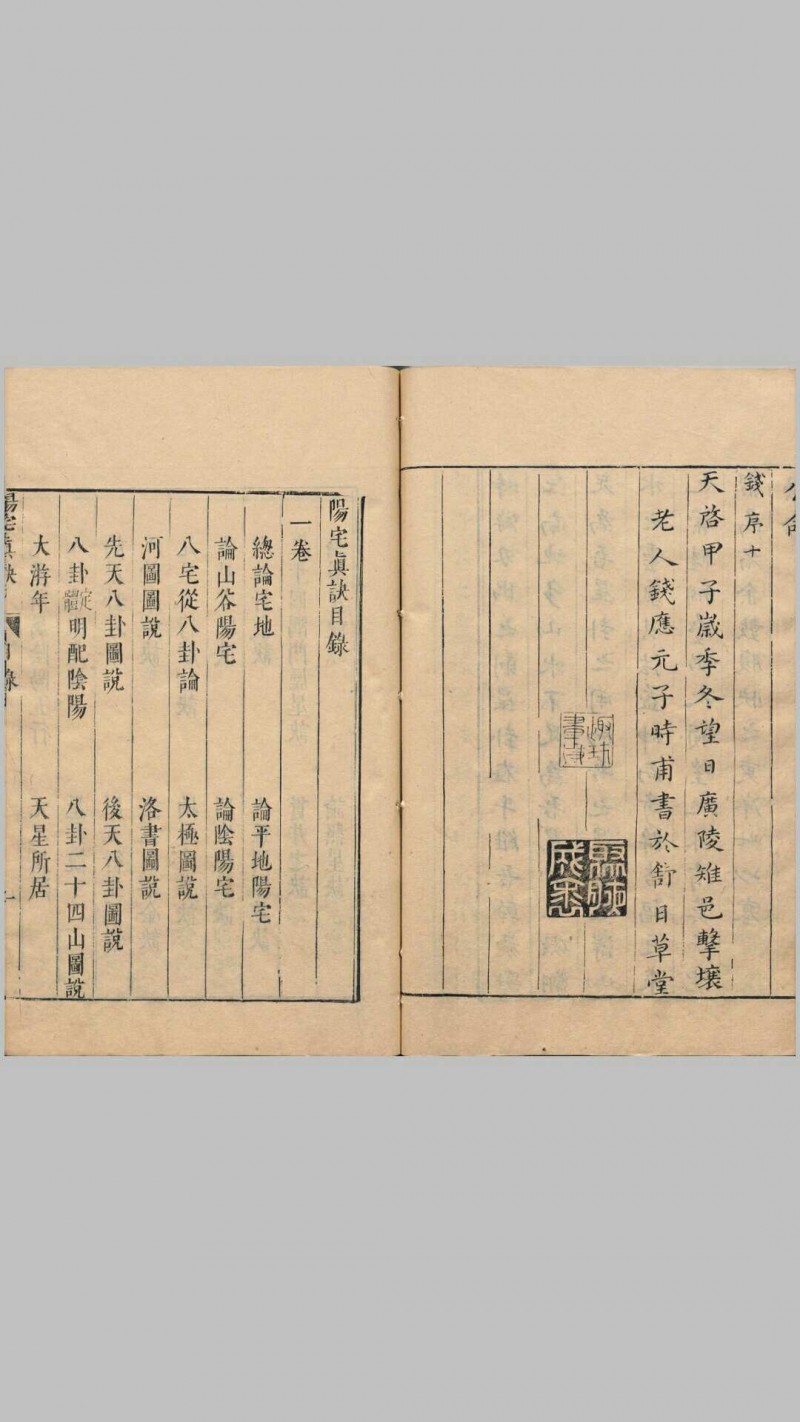 錢序十
天啓甲子嵗季冬望日廣陵雉邑擊壤
老人錢應元子時甫書於舒日草堂
陽宅眞訣目錄
一卷
總論宅地 論平地陽宅
論山谷陽宅 論陰陽宅
八宅從八卦論 太極圖說
河圖圖說 洛書圖說
先天八卦圖說 後天八卦圖說
八卦定體明配陰陽 八卦二十四山圖說
大游年 天星所居
陽宅眞訣 目錄 一